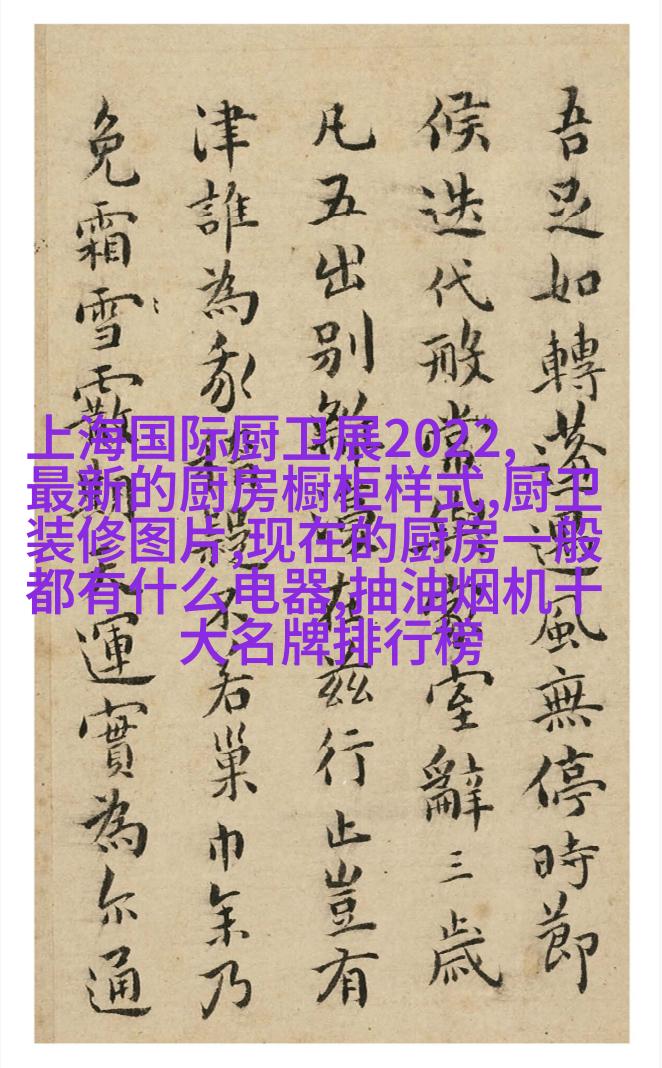 上海国际厨卫展2022,
最新的厨房橱柜样式,厨卫
装修图片,现在的厨房一般
都有什么电器,抽油烟机十
大名牌排行榜
吾足如轉蓬風無停時節
候迭代常室辭三歲
凡五出別在茲行止豈有
津誰為不若巢巾乃
免霜雪運實為尔通